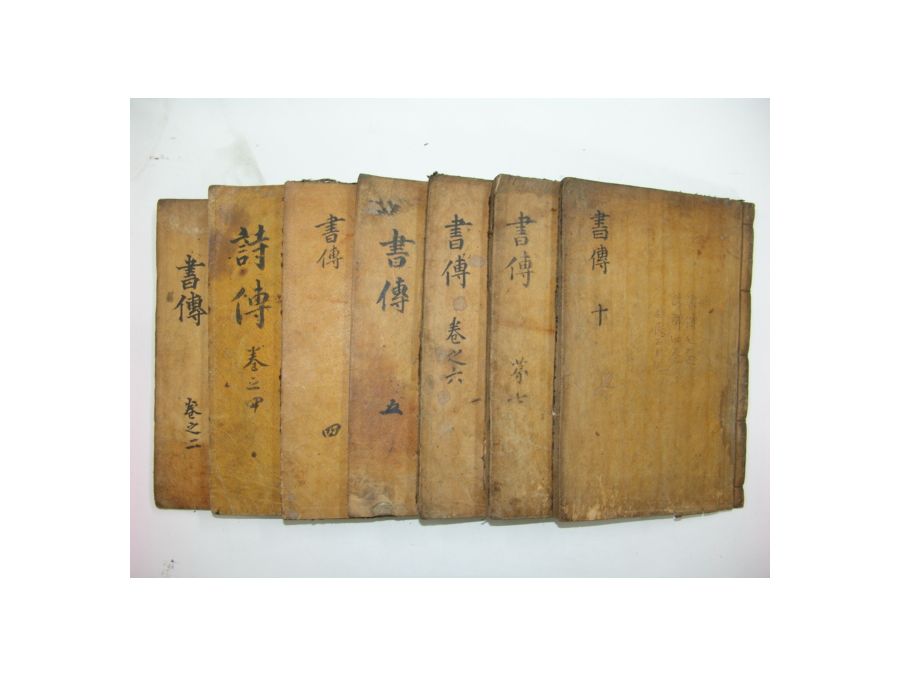 書傳 卷之二
詩傳 卷之甲
書傳 四
書傳 五
書傳 卷之六
書傳 苐七
書傳 十